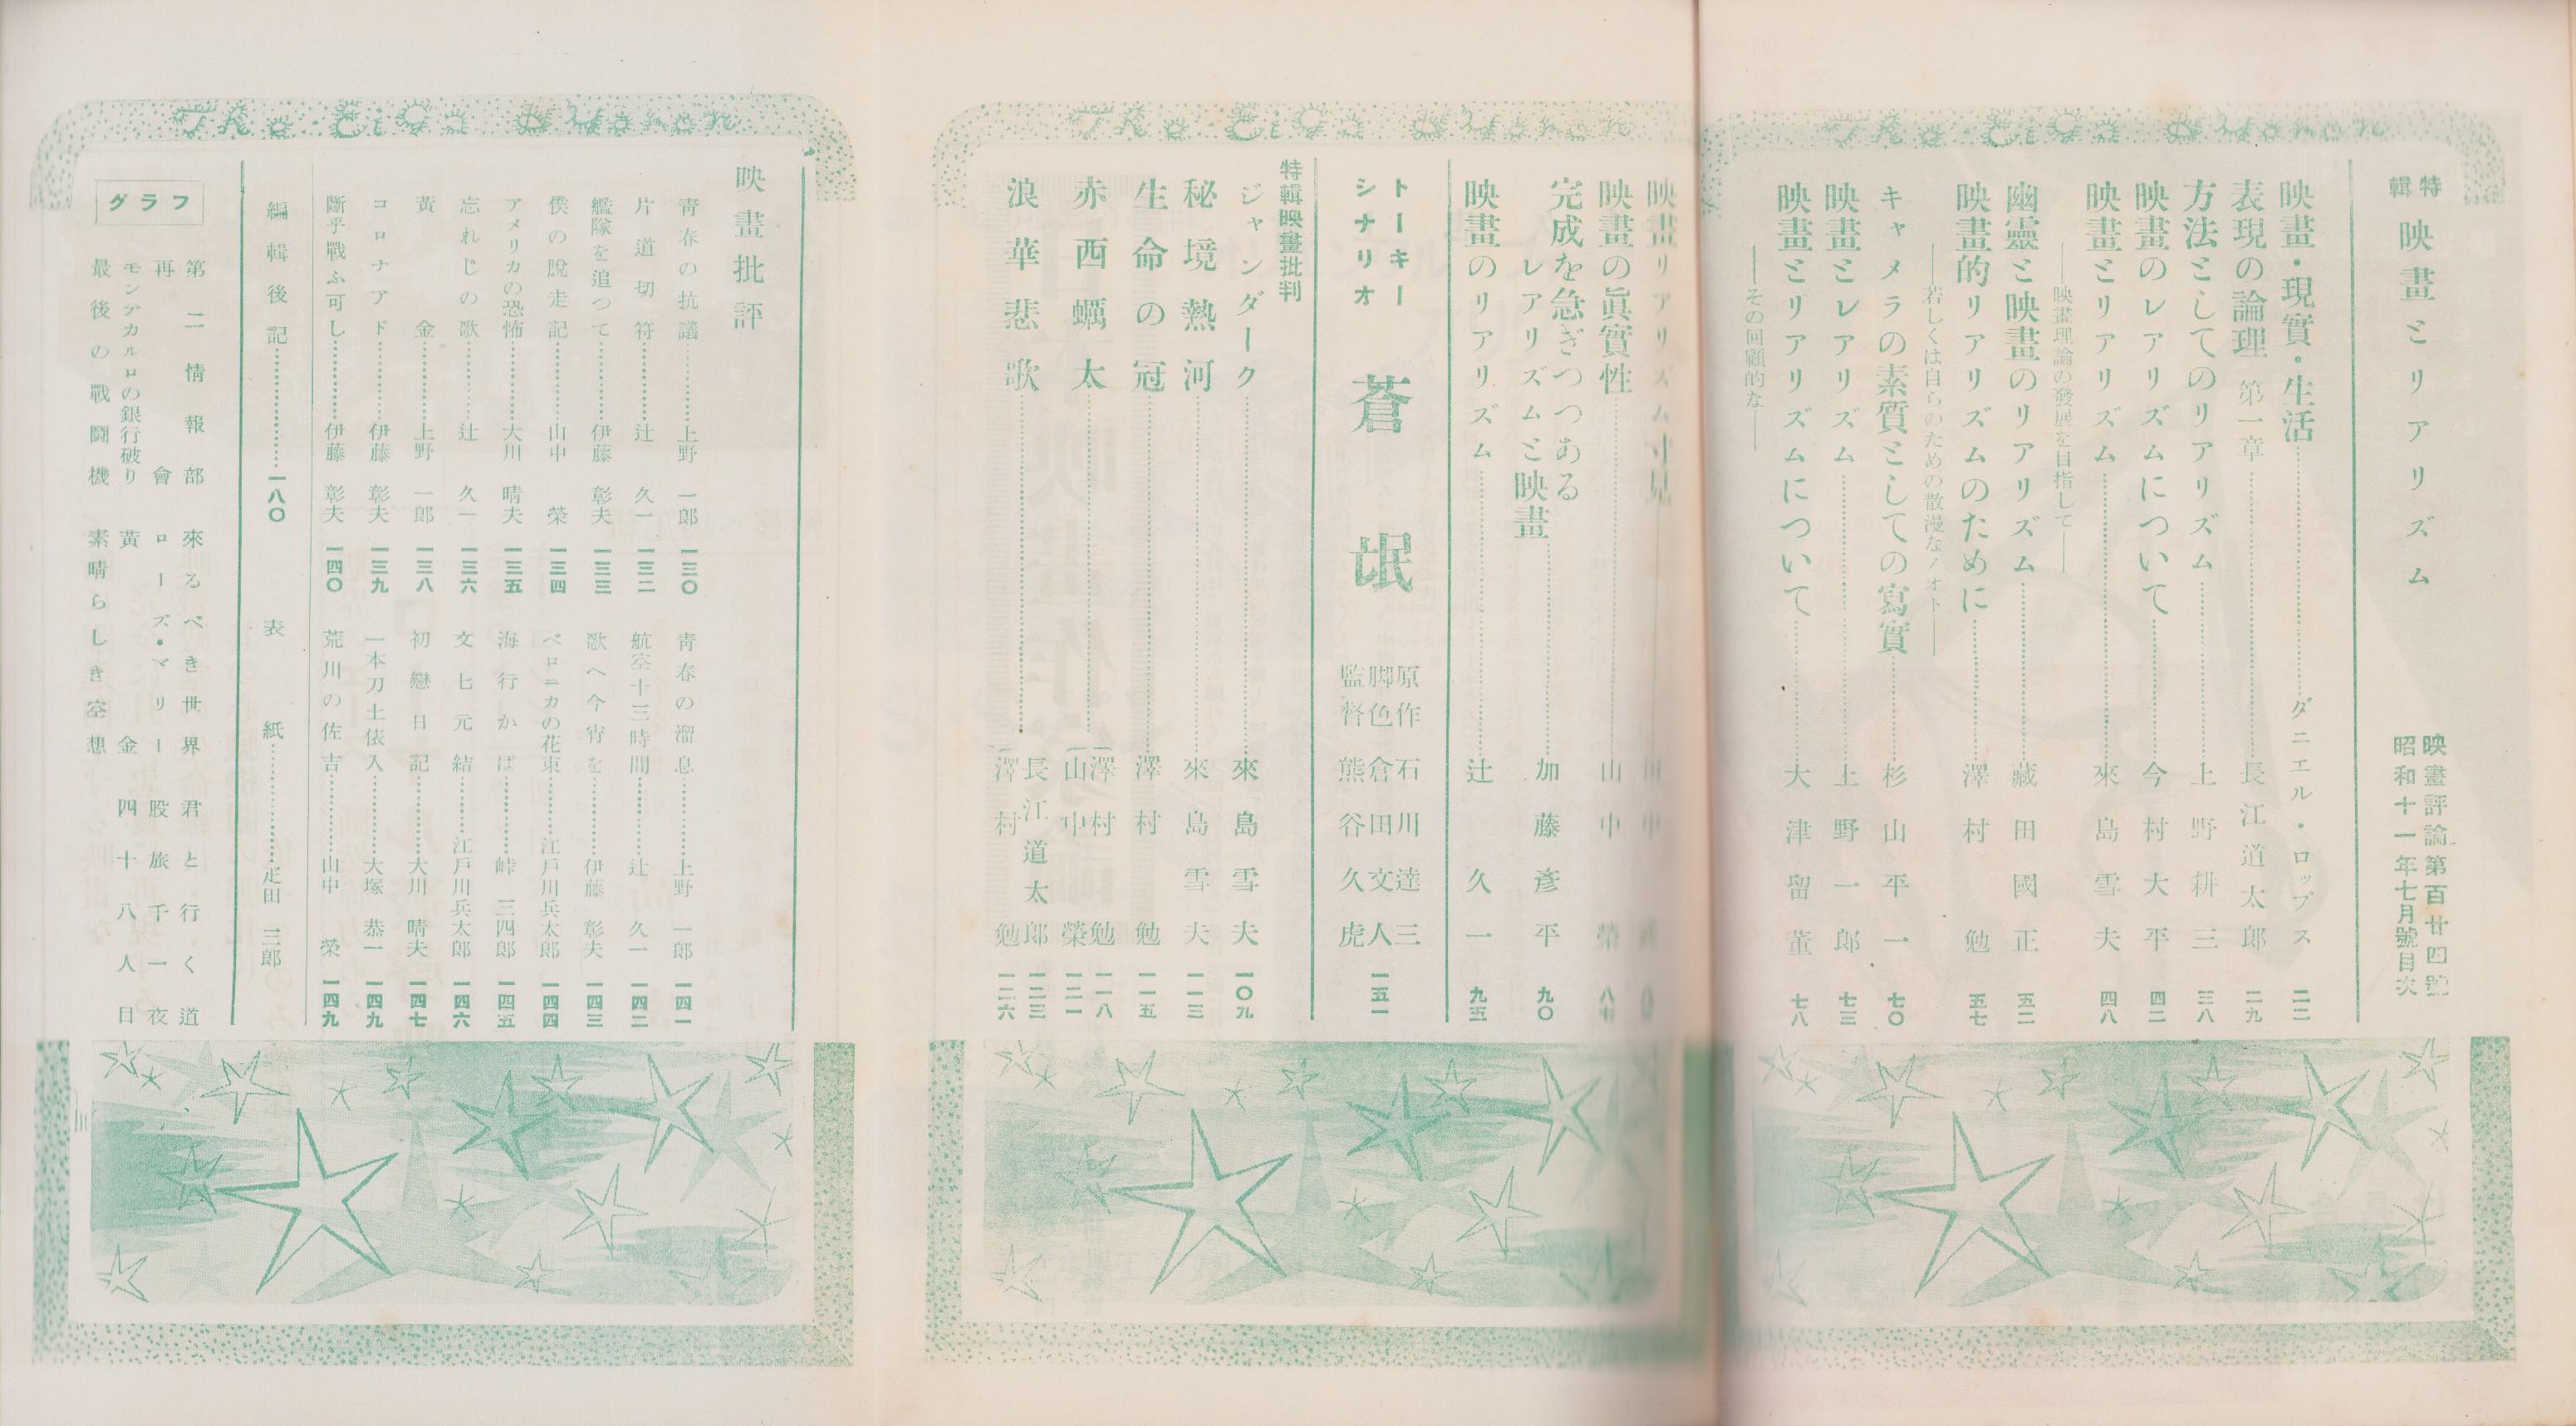 The Eiga Hyoron
特輯 映畫とリアリズム
映畫評論第百廿四號
昭和十一年七月號目次
映畫・現實・生活……ダニエル・ロップス 二二
表現の論理 第一章……長江道太郎 二九
方法としてのリアリズム……上野耕三 三八
映畫のレアリズムについて……今村太平 四二
映畫とリアリズム……來島雪夫 四八
――映畫理論の發展を目指して――
幽靈と映畫のリアリズム……藏田國正 五二
映畫的リアリズムのために……澤村勉 五七
――若しくは自らのための散漫なノオト――
キャメラの素質としての寫實……杉山平一 七〇
映畫とレアリズム……上野一郎 七三
映畫とリアリズムについて……大津留董 七八
――その回顧的な――
The Eiga Hyoron
映畫リアリズム寸見
映畫の眞實性……山中榮
完成を急ぎつつある
レアリズムと映畫……加藤彥平 九〇
映畫のリアリズム……辻久一 九五
トーキー
シナリオ
蒼氓
原作 石川達三
脚色 倉田文人
監督 熊谷久虎
一五一
特輯映畫批判
ジャンダーク……來島雪夫 一〇九
秘境熱河……來島雪夫 一一三
生命の冠……澤村勉 一一五
赤西蠣太……澤村勉 一一八
山中榮 一二一
浪華悲歌……長江道太郎 一二三
澤村勉 一二六
The Eiga Hyoron
映畫批評
靑春の抗議……上野一郎 一三〇
片道切符……辻久一 一三二
艦隊を追つて……伊藤彰夫 一三三
僕の脫走記……山中榮 一三四
アメリカの恐怖……大川晴夫 一三五
忘れじの歌……辻久一 一三六
黃金……上野一郎 一三八
コロナアド……伊藤彰夫 一三九
斷乎戰ふ可し……伊藤彰夫 一四〇
靑春の溜息……上野一郎 一四一
航空十三時間……辻久一 一四二
歌へ今宵を……伊藤彰夫 一四三
ベロニカの花束……江戶川兵太郎 一四四
海行かば……峠三四郎 一四五
文七元結……江戶川兵太郎 一四六
初戀日記……大川晴夫 一四七
一本刀土俵入……大塚恭一 一四九
荒川の佐吉……山中榮 一四九
編輯後記……一八〇
表紙……疋田三郎
グラフ
第二情報部 來るべき世界 君と行く道
再會 ローズ・マリー 股旅千一夜
モンテカルロの銀行破り 黃金 四十八人目
最後の戰鬪機 素晴らしき空想